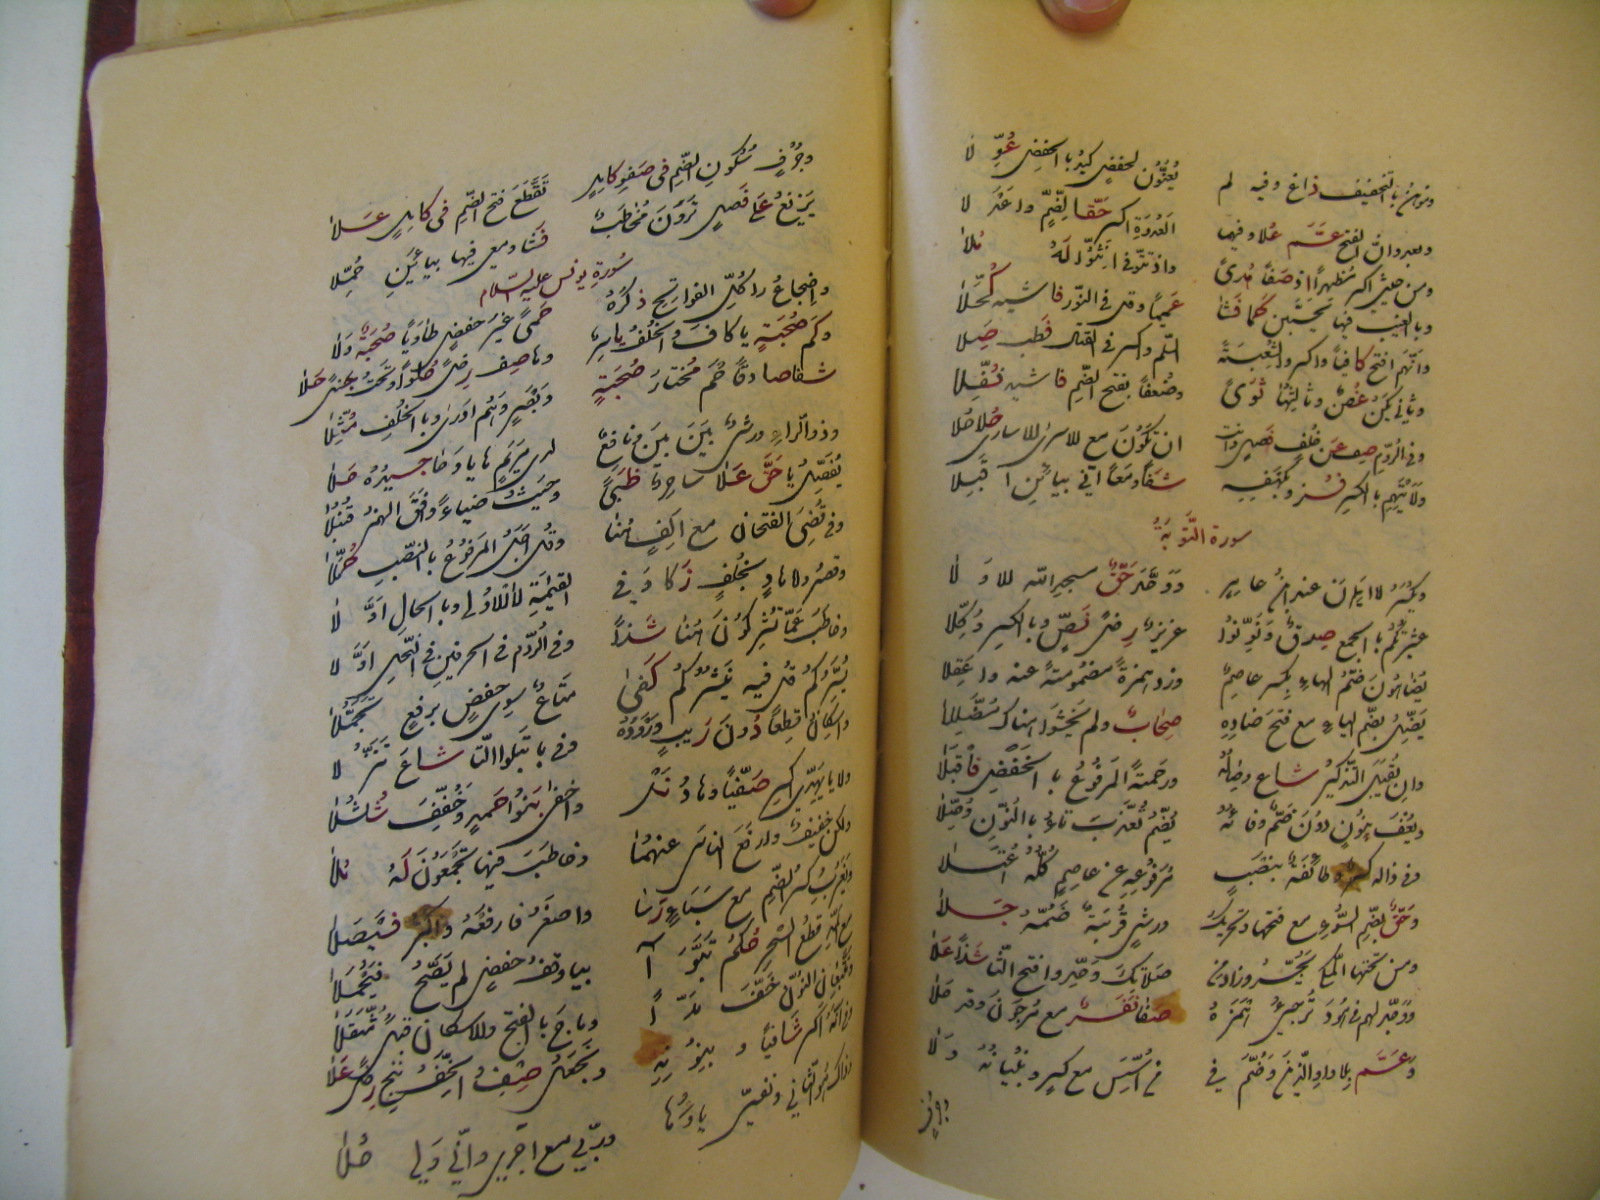 وموهن بالتخفيف ذاع وفيه لم ينون لحفص كيد بالخفض عولا
وبعد وان الفتح عم علا وفيها العدوة اكسر حقا الضم واعدلا
ومن حيي اكسر مظهرا اذ صفا هدى واذ تتوفى انثوا له ملا
وبالغيب فيها تحسبن كما فشا عميما وقل في النور فاشيه كحلا
وانهم افتح كافيا واكسروا لشعبة السلم واكسر في القتال فطب صلا
وثاني يكن غصن وثالثها ثوى وضعفا بفتح الضم فاشيه نفلا
وفي الروم صف عن خلف فصل وانث ان تكون مع الاسرى الاسارى حلا حلا
ولايتهم بالكسر فز وبكهفه شفا ومعا اني بياءين اقبلا
سورة التوبة
ويكسر لا ايمان عند ابن عامر ووحد حق مسجد الله الاولا
عشيراتكم بالجمع صدق ونونوا عزير رضى نص وبالكسر وكلا
يضاهون ضم الهاء يكسر عاصم وزد همزة مضمومة عنه واعقلا
يضل بضم الياء مع فتح ضاده صحاب ولم يخشوا هناك مضللا
وان تقبل التذكير شاع وصاله ورحمة المرفوع بالخفض فاقبلا
ويعف بنون دون ضم وفاؤه يضم تعذب تاه بالنون وصلا
وفي ذاله كسر وطائفة بنصب مرفوعه عن عاصم كله اعتلا
وحق بضم السوء مع فتحها وتحريك ورش قربة ضمه جلا
ومن تحتها المكي يجر وزاد من صلاتك وحد وافتح التا شذا علا
ووحد لهم في هود ترجئ همزه صفا نفر مع مرجؤن وقد حلا
وعم بلا واو الذين وضم في من اسس مع كسر وبنيانه ولا
وجرف سكون الضم في صفو كامل تقطع فتح الضم في كامل علا
يزيغ على فصل ترون مخاطب فشا ومعي فيها بياءين حملا
سورة يونس عليه السلام
واضجاع را كل الفواتح ذكره حمى غير حفص طاويا صحبة ولا
وكم صحبة يا كاف والخلف ياسر وها صف رضى حلوا وتحت جنى حلا
شفا صادقا حم مختار صحبة وبصر وهم ادرى وبالخلف مثلا
وذو الراء ورش بين بين ونافع لدى مريم هايا وحا جيده حلا
يفصل يا حق علا ساحر ظبى وحيث ضياء وافق الهمز قنبلا
وفي قضي الفتحان مع الف هنا وقل اجل المرفوع بالنصب كملا
وقصر ولا هاد بخلف زكا وفي القيمة لا الاولى وبالحال اولا
وخاطب عما تشركون هنا شذا وفي الروم في الحرفين في النحل اولا
يسيركم قل فيه ينشركم كفى متاع سوى حفص برفع تحملا
واسكان قطعا دون ريب وروده وفي باء تبلوا التا شاع تنزلا
ولا يا يهدي اكسر صفيا وهاه نل واخفى بنو احمد وخفف شلشلا
ولكن خفيف وارفع الناس عنهما وخاطب فيها تجمعون له ملا
ويعزب كسر الضم مع سباء رسا واصغر فارفعه واكبر فيصلا
مع المد قطع السحر حكم تبوا بيا وقف حفص لم يصح فيحملا
وتتبعان النون خف مدا وماج بالفتح والاسكان قبل مثقلا
وفي انه اكسر شافيا وبنونه ونجعل صف والخف ننج رضى علا
وذاك هو الثاني ونفسي ياؤها وربي مع اجري واني ولي حلا